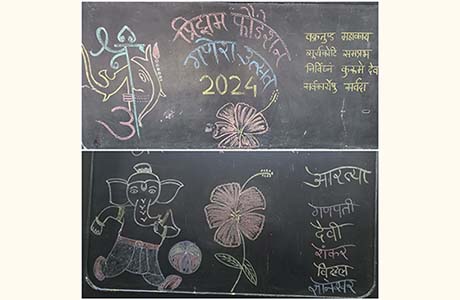 श्री
प्रिझम फौंडेशन
गणेश उत्सव
2024
वक्रतुण्ड महाकाय
सूर्यकोटि समप्रभ
निर्विघ्नं कुरूमे देव
सर्वकार्येषु सर्वदा
आरत्या
गणपती
देवी
शंकर
विठ्ठल
ज्ञानेश्वर